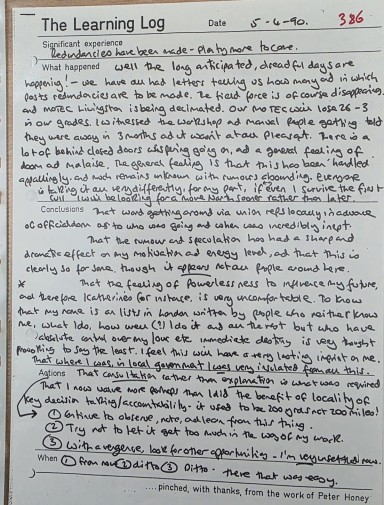 The Learning Log Date 5-4-90. 386
Significant experience
Redundancies have been made - plenty more to come.
What happened Well the long anticipated, dreadful days are
happening! - we have all had letters telling us how many and in which
posts redundancies are to be made. The field force is of course disappearing,
and MOTEC Livingston is being decimated. Our MOTEC will lose 26-3
in our grades. I witnessed the workshop and manual people getting told
they were away in 3 months and it wasn't at all pleasant. There is a
lot of behind closed doors whispering going on, and a general feeling of
doom and malaise. The general feeling is that this has been handled
appallingly, and much remains unknown with rumours abounding. Everyone
is taking it all very differently, for my part, if even I survive the first
cull I will be looking for a move North sooner rather than later.
Conclusions That word getting around via union reps locally in advance
of officialdom as to who was going and when was incredibly inept.
That the rumour and speculation has had a sharp and
dramatic effect on my motivation and energy level, and that this is
clearly so for some, though it appears not all people around here.
* That the feeling of powerlessness to influence my future,
and therefore Catherine's for instance, is very uncomfortable. To know
that my name is on lists in London written by people who neither know
me, what I do, how well (?) I do it and all the rest but who have
absolute control over my love etc immediate destiny is very thought
provoking to say the least. I feel this will have a very lasting imprint on me.
That when I was in local government I was very isolated from all this.
Actions That consultation rather than explanation is what was required
That I now value more perhaps than I did the benefit of locality of
key decision taking/accountability - it used to be 200 yards not 200 miles!
① Continue to observe, note, and learn from this thing.
② Try not to let it get too much in the way of my work.
③ With a vengeance, look for other opportunities - I'm very unsettled now.
When ① from now ② ditto ③ Ditto. there that was easy.
....pinched, with thanks, from the work of Peter Honey